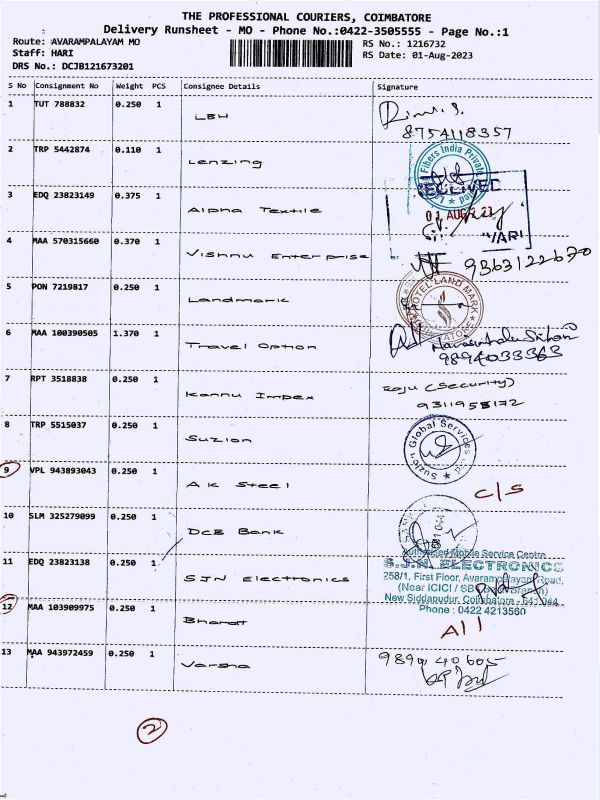 THE PROFESSIONAL COURIERS, COIMBATORE
Delivery Runsheet - MO - Phone No.:0422-3505555 - Page No.:1
Route: AVARAMPALAYAM MO
Staff: HARI
DRS No.: DCJB121673201
RS No.: 1216732
RS Date: 01-Aug-2023
S No Consignment No Weight PCS Consignee Details Signature
1 TUT 788832 0.250 1 LBW
8754118357
2 TRP 5442874 0.110 1 Lenzing
Fibers India Private
RECEIVED
3 EDQ 23823149 0.375 1 Alpha Textile
01 AUG 23
4 MAA 570315660 0.370 1 Vishnu Enterprise
9363122670
5 PON 7219817 0.250 1 Landmark
HOTEL LAND MARK
6 MAA 100390505 1.370 1 Travel Option
9894033363
7 RPT 3518838 0.250 1 Kannu Impex
Raju (Security)
9311958172
8 TRP 5515037 0.250 1 Suzlon
Suzlon Global Services
9 VPL 943893043 0.250 1 AK Steel
C/S
10 SLM 325279099 0.250 1 DCB Bank
11 EDQ 23823138 0.250 1 SJN Electronics
Authorised Mobile Service Centre
S.J.N. ELECTRONICS
258/1, First Floor, Avarampalayam Road,
(Near ICICI / SBI Branch)
New Siddapudur, Coimbatore - 641 044
Phone : 0422 4213560
12 MAA 103909975 0.250 1 Bharat
All
13 MAA 943972459 0.250 1 Varsha
2